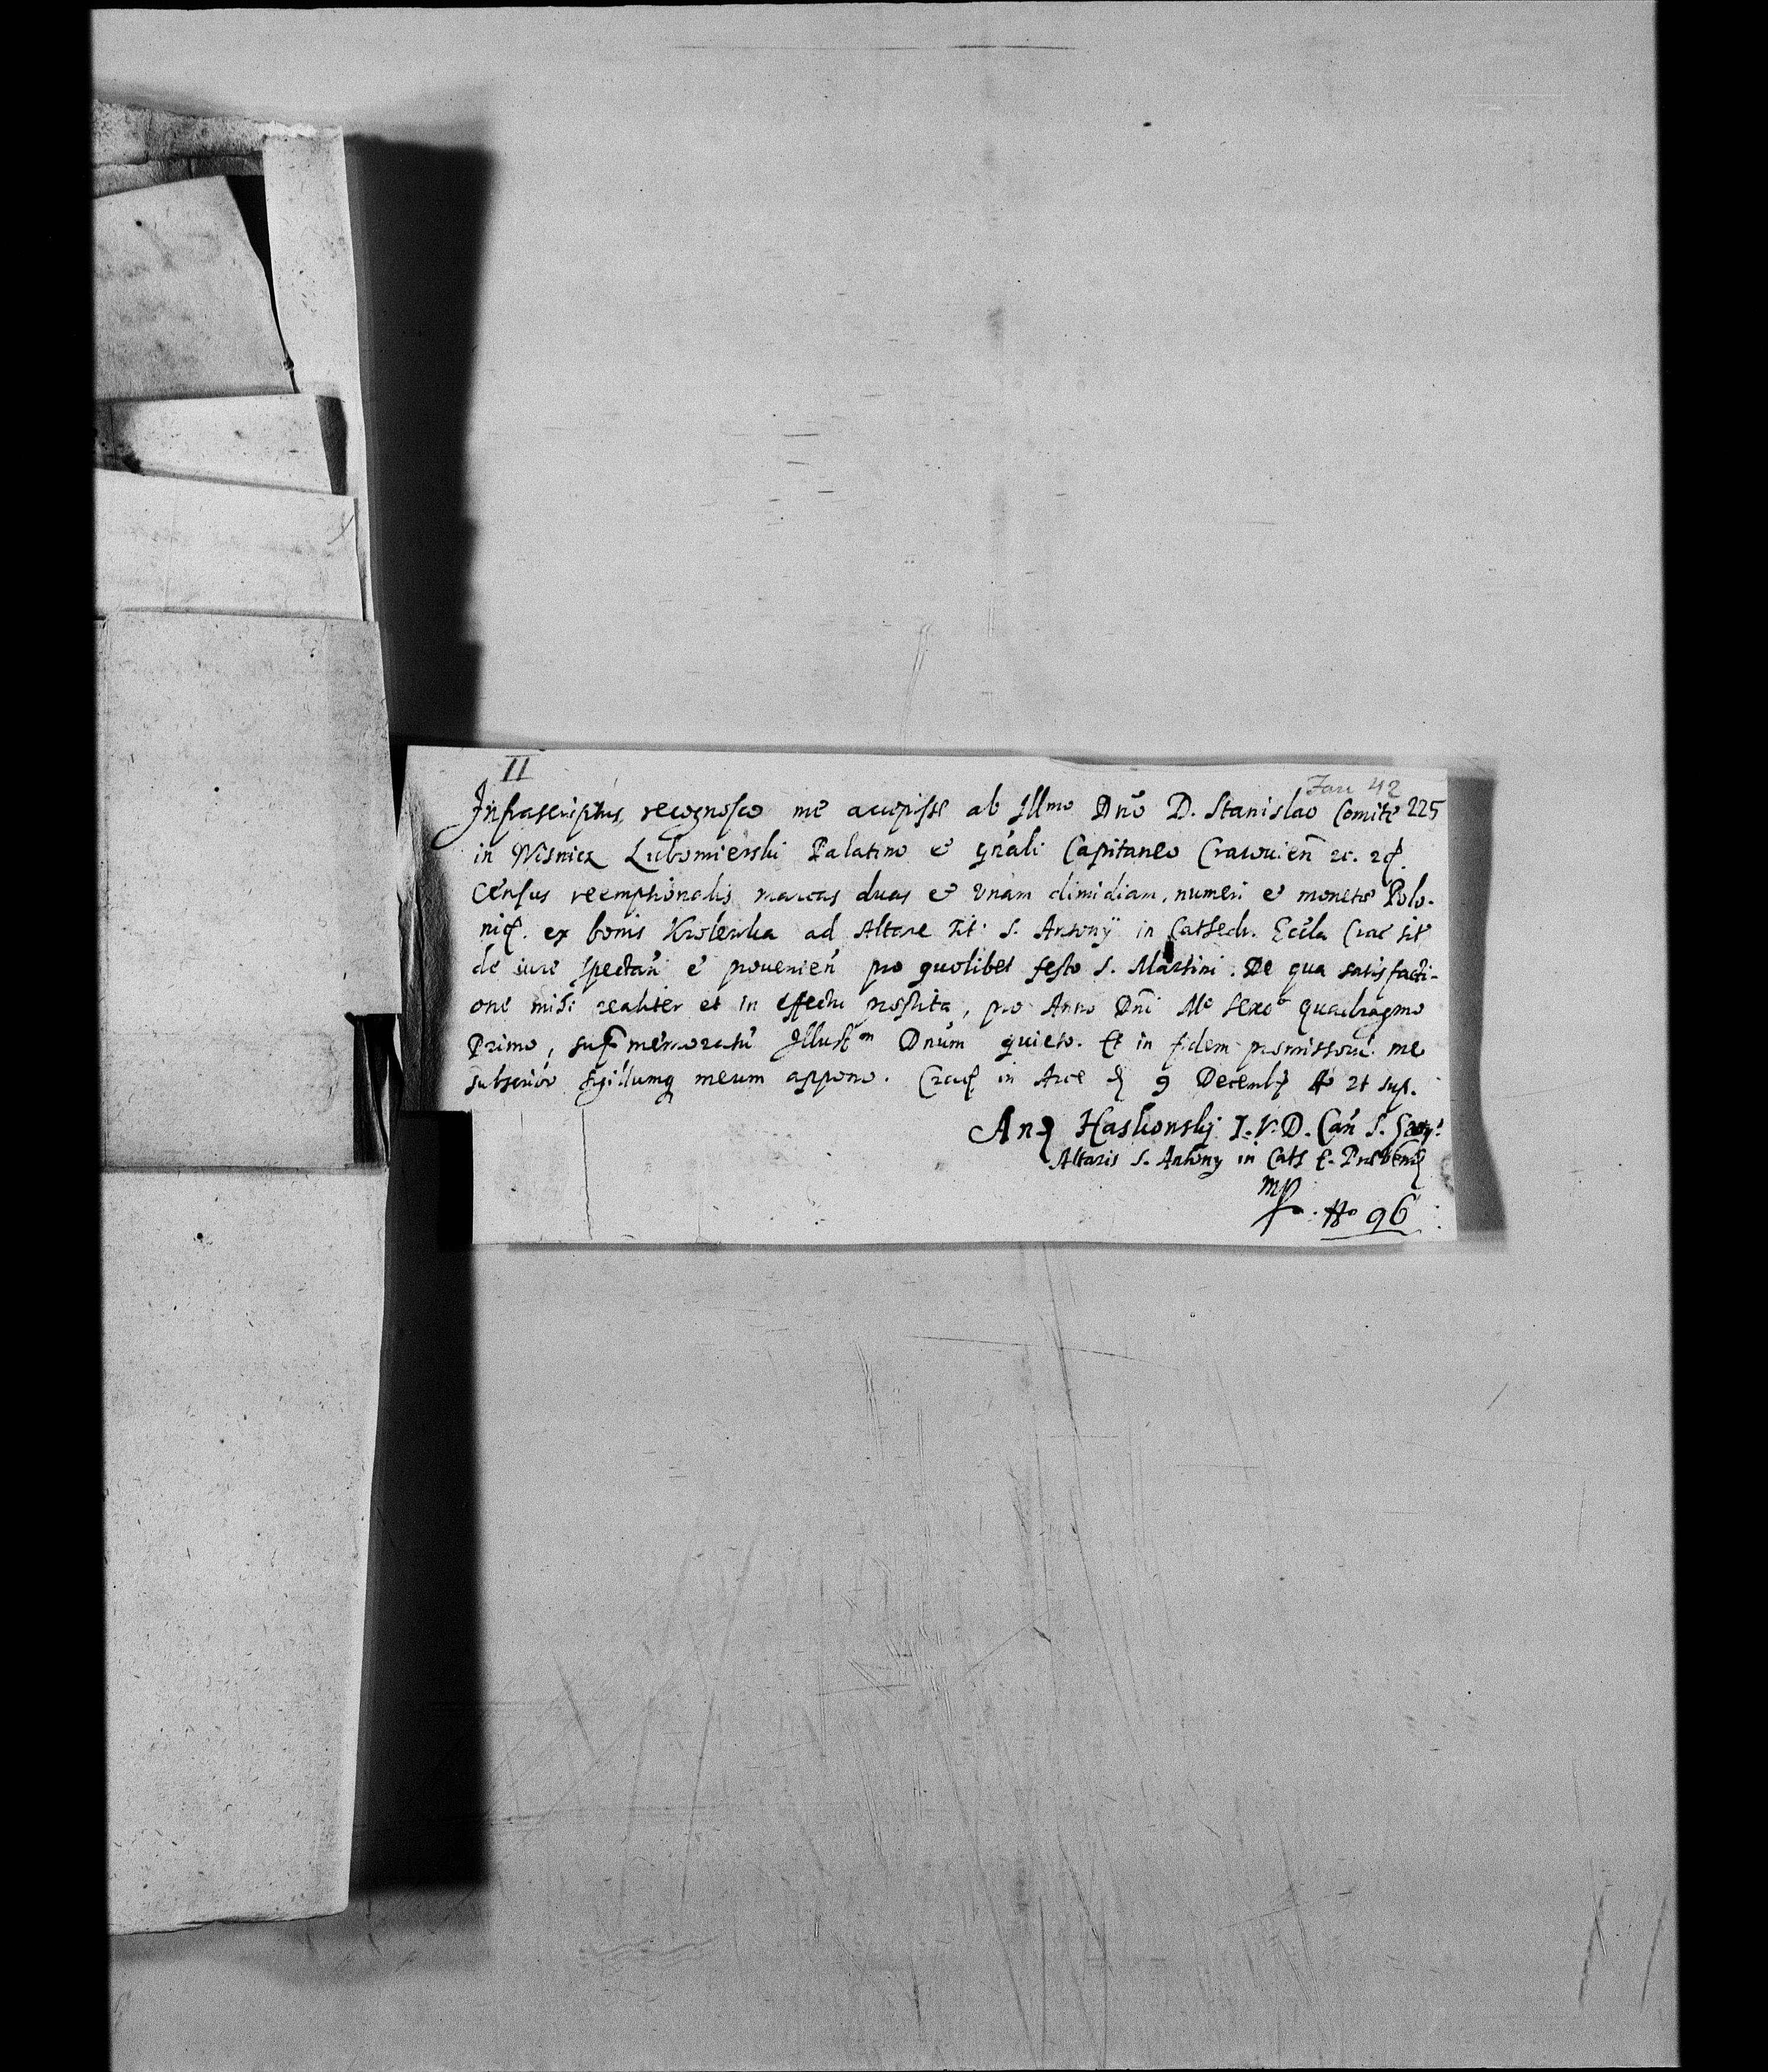 II
Jan 42
Infrascriptus recognosco me accepisse ab Illmo Dno D. Stanislao Comite 225
in Wisnicz Lubomierski Palatino et gnáli Capitaneo Cracouień etc. etc.
Census reemptionalis marcas duas et unam dimidiam, numeri et monetæ Polo-
nicę. ex bonis Krolewka ad Altare tit: S. Antonÿ in Cathedr. Eccła Crac̄ sit
de iure spectań et prouenień pro quolibet festo S. Martini. De qua satisfacti-
one mihi realiter et in effectu præstita, pro Anno Dnī Mº sexcº quadragmo
Primo, supramemoratū Illustem Dnúm quieto. Et in fidem præmissorū me
subscribo sigillumq meum appono. Crac in Arce d 9 Decemb Aº ut sup.
And Haskonskj I.V.D. Cań S.
Altaris S. Antony in Cath E. Præbend
mp
Nº 96